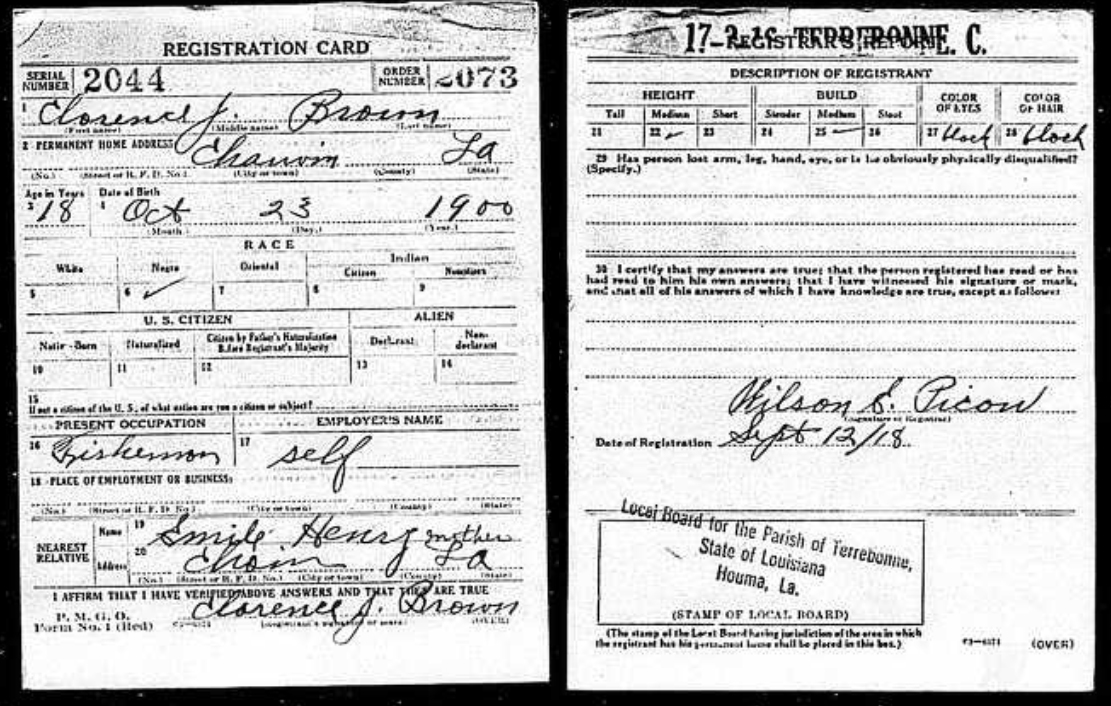 REGISTRATION CARD
SERIAL NUMBER 2044 ORDER NUMBER 2073
1 Clarence J. Brown
(First name) (Middle name) (Last name)
2 PERMANENT HOME ADDRESS Chauvin La
(No.) (Street or R. F. D. No.) (City or town) (County) (State)
Age in Years Date of Birth
3 18 4 Oct 23 1900
(Month.) (Day.) (Year.)
RACE
White Negro Oriental Indian
Citizen Noncitizen
5 6 ✓ 7 8 9
U. S. CITIZEN ALIEN
Native-Born Naturalized Citizen by Father's Naturalization Before Registrant's Majority Declarant Non-declarant
10 11 12 13 14
15
If not a citizen of the U. S., of what nation are you a citizen or subject?
PRESENT OCCUPATION EMPLOYER'S NAME
16 Fisherman 17 self
18 PLACE OF EMPLOYMENT OR BUSINESS:
(No.) (Street or R. F. D. No.) (City or town) (County) (State)
NEAREST RELATIVE Name 19 Emile Henry mother
Address 20 La
(No.) (Street or R. F. D. No.) (City or town) (County) (State)
I AFFIRM THAT I HAVE VERIFIED ABOVE ANSWERS AND THAT THEY ARE TRUE
P. M. G. O.
Form No. 1 (Red) Clarence J. Brown
(Registrant's signature or mark) (OVER)
17-2-16 TERREBONNE. C.
REGISTRAR'S REPORT
DESCRIPTION OF REGISTRANT
HEIGHT BUILD COLOR OF EYES COLOR OF HAIR
Tall Medium Short Slender Medium Stout
21 22 ✓ 23 24 25 ✓ 26 27 black 28 black
29 Has person lost arm, leg, hand, eye, or is he obviously physically disqualified?
(Specify.)
30 I certify that my answers are true; that the person registered has read or has
had read to him his own answers; that I have witnessed his signature or mark,
and that all of his answers of which I have knowledge are true, except as follows:
Wilson S. Picou
(Signature of Registrar)
Date of Registration Sept 12/18
Local Board for the Parish of Terrebonne,
State of Louisiana
Houma, La.
(STAMP OF LOCAL BOARD)
(The stamp of the Local Board having jurisdiction of the area in which
the registrant has his permanent home shall be placed in this box.)
(OVER)